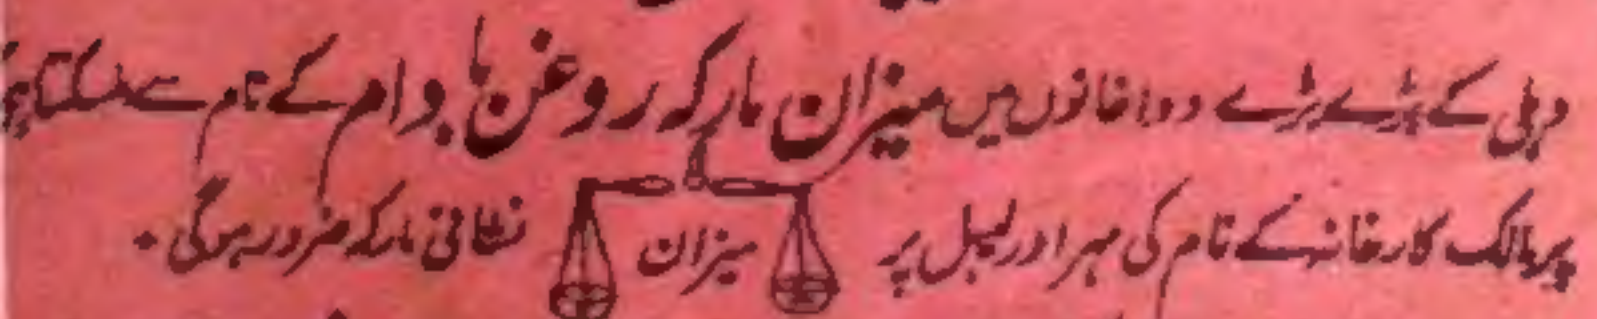 دہلی کے بڑے بڑے دواخانوں میں میزان مارکہ روغن بادام کے نام سے ملسکتا ہے
پر مالک کارخانہ کے نام کی مہر اور لیبل پر میزان نشانی مارکہ ضرور ہوگی ۔